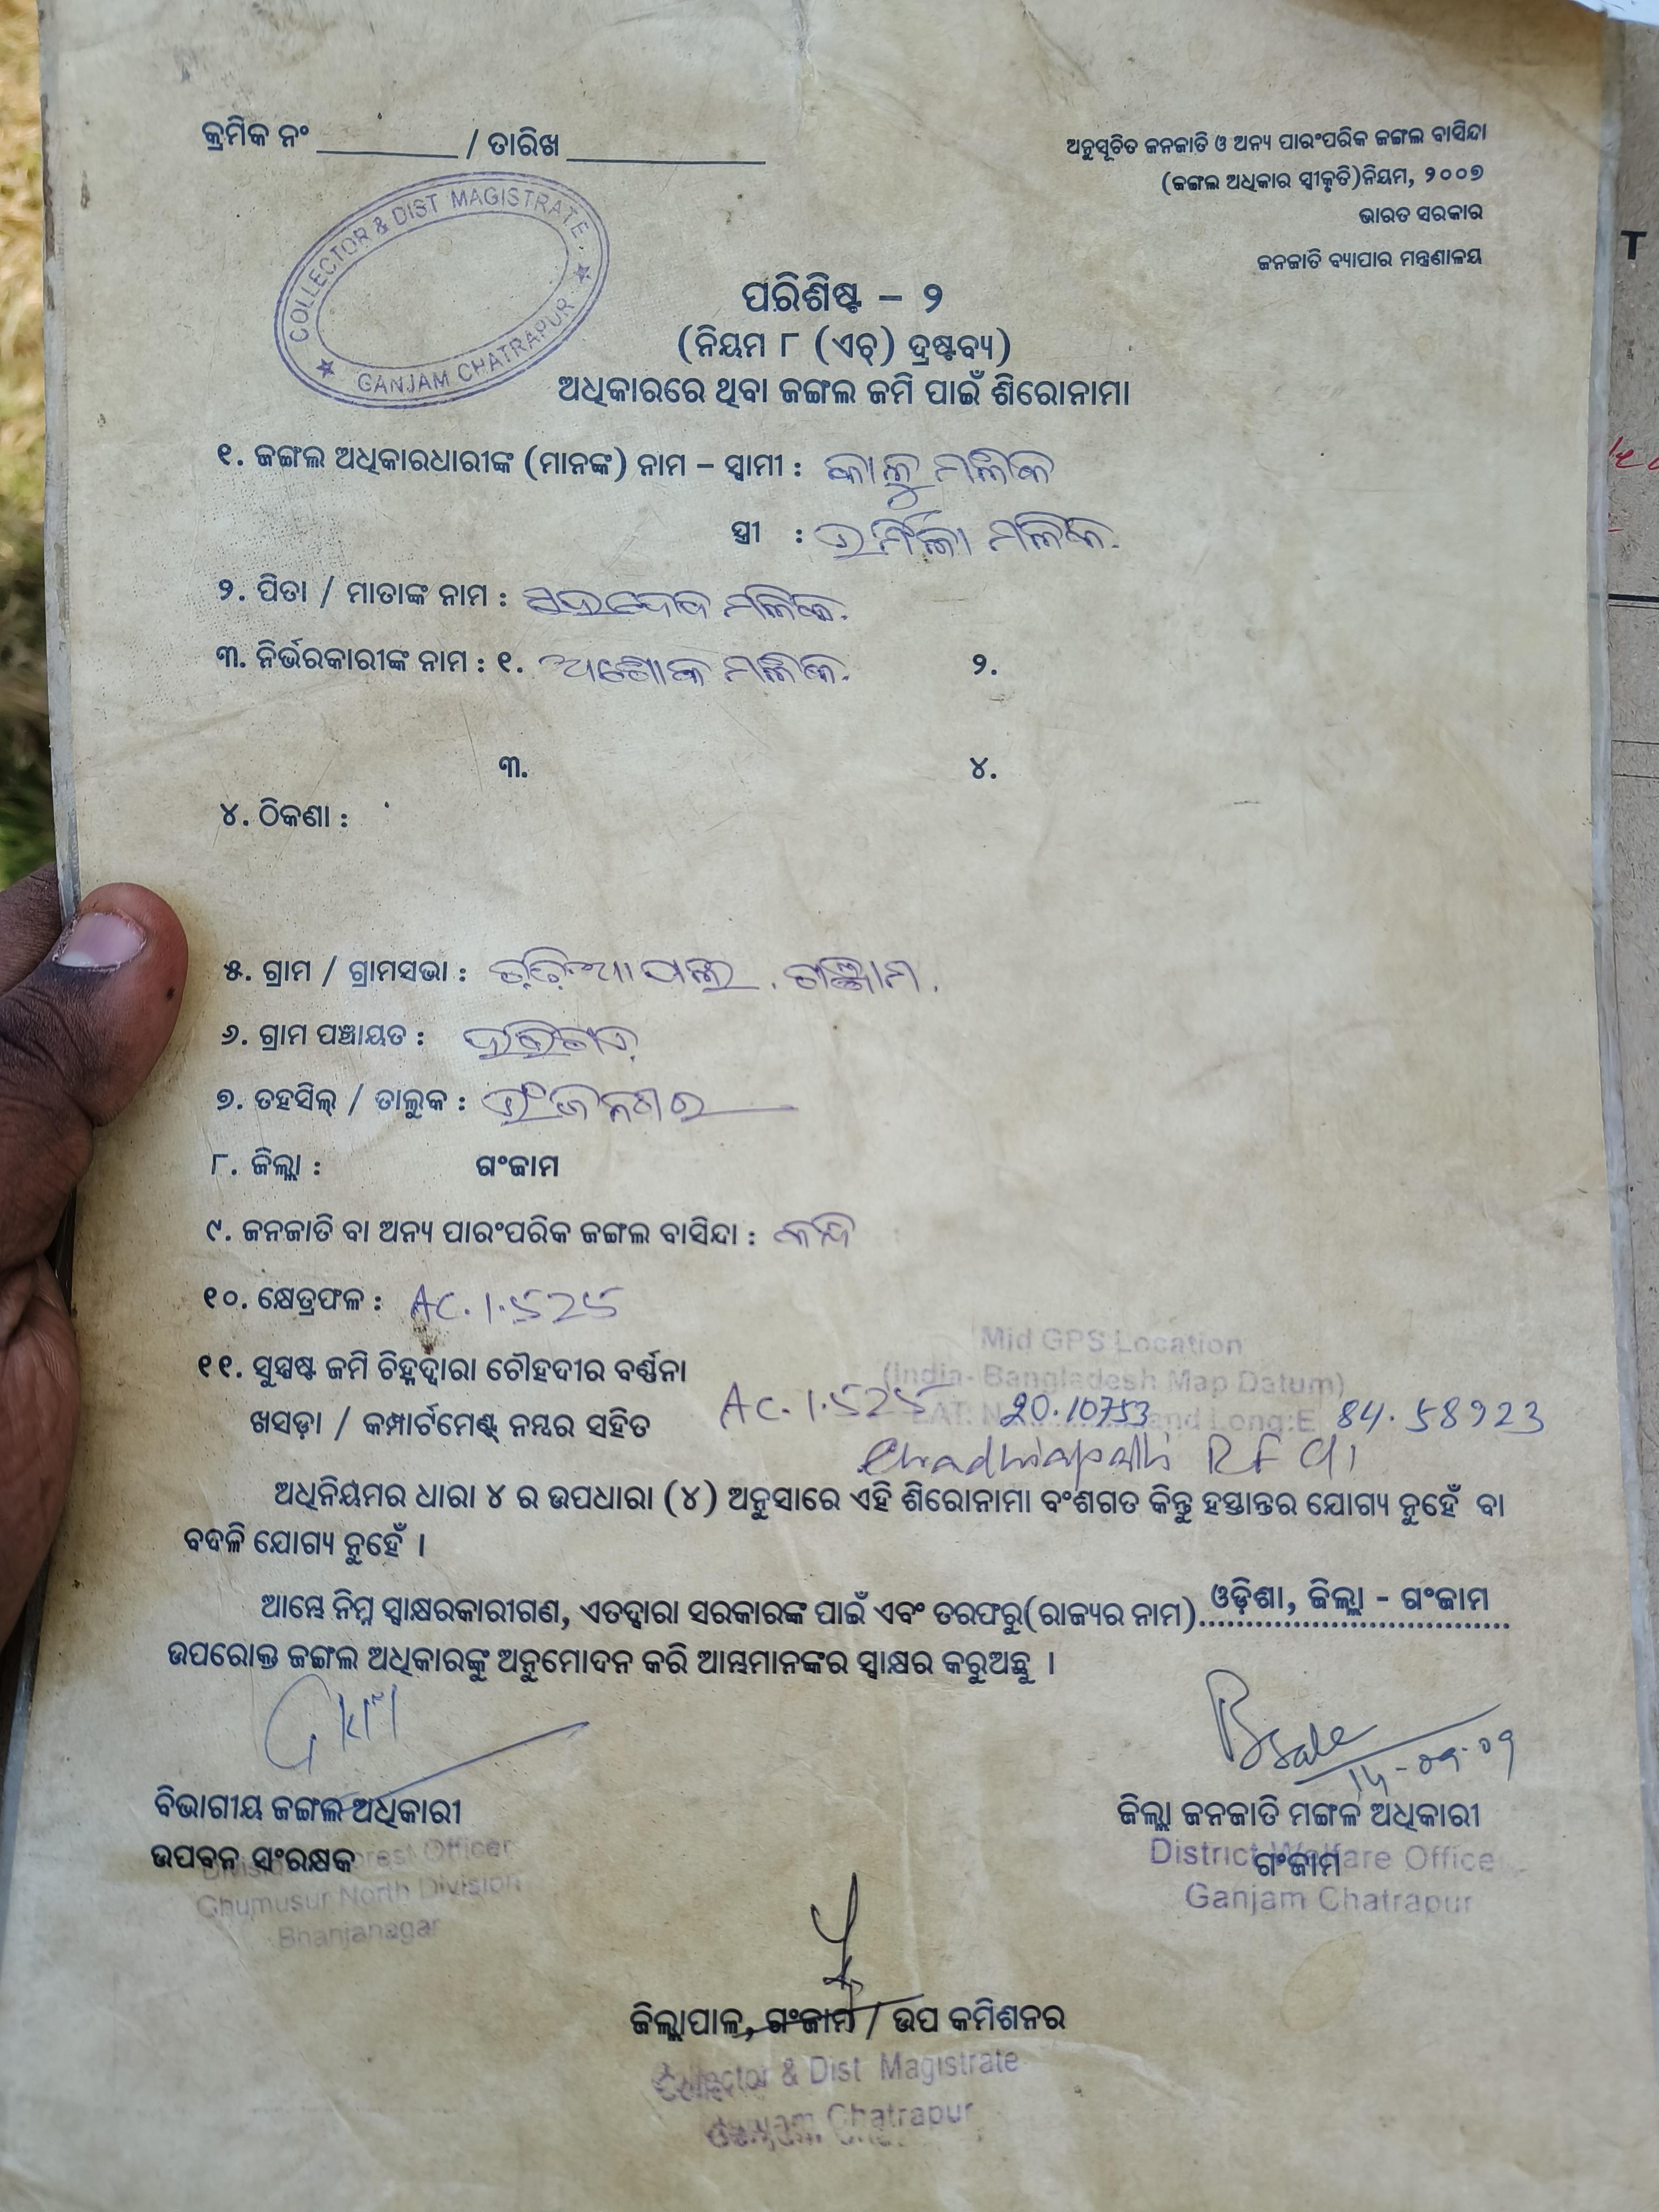 କ୍ରମିକ ନଂ ________ / ତାରିଖ ___________
ଅନୁସୂଚିତ ଜନଜାତି ଓ ଅନ୍ୟ ପାରଂପରିକ ଜଙ୍ଗଲ ବାସିନ୍ଦା
(ଜଙ୍ଗଲ ଅଧିକାର ସ୍ୱୀକୃତି)ନିୟମ, ୨୦୦୭
ଭାରତ ସରକାର
ଜନଜାତି ବ୍ୟାପାର ମନ୍ତ୍ରଣାଳୟ
COLLECTOR & DIST MAGISTRATE.
GANJAM CHATRAPUR
ପରିଶିଷ୍ଟ – ୨
(ନିୟମ ୮ (ଏଚ୍) ଦ୍ରଷ୍ଟବ୍ୟ)
ଅଧିକାରରେ ଥିବା ଜଙ୍ଗଲ ଜମି ପାଇଁ ଶିରୋନାମା
୧. ଜଙ୍ଗଲ ଅଧିକାରଧାରୀଙ୍କ (ମାନଙ୍କ) ନାମ – ସ୍ୱାମୀ : କାଳୁ ମଲିକ
ସ୍ତ୍ରୀ : ଉର୍ମିଳା ମଲିକ.
୨. ପିତା / ମାତାଙ୍କ ନାମ : ମଲିକ.
୩. ନିର୍ଭରକାରୀଙ୍କ ନାମ : ୧. ଅଶୋକ ମଲିକ. ୨.
୩. ୪.
୪. ଠିକଣା :
୫. ଗ୍ରାମ / ଗ୍ରାମସଭା : ଗଞ୍ଜାମ.
୬. ଗ୍ରାମ ପଞ୍ଚାୟତ :
୭. ତହସିଲ୍ / ତାଲୁକ : ଭଂଜନଗର
୮. ଜିଲ୍ଲା : ଗଂଜାମ
୯. ଜନଜାତି ବା ଅନ୍ୟ ପାରଂପରିକ ଜଙ୍ଗଲ ବାସିନ୍ଦା : କନ୍ଧ
୧୦. କ୍ଷେତ୍ରଫଳ : AC. 1.525
Mid GPS Location
(India- Bangladesh Map Datum)
୧୧. ସୁସ୍ପଷ୍ଟ ଜମି ଚିହ୍ନଦ୍ୱାରା ଚୌହଦୀର ବର୍ଣ୍ଣନା
ଖସଡ଼ା / କମ୍ପାର୍ଟମେଣ୍ଟ୍ ନମ୍ବର ସହିତ AC. 1.525 LAT: N 20.10753 and Long:E 84.58923
RF
ଅଧିନିୟମର ଧାରା ୪ ର ଉପଧାରା (୪) ଅନୁସାରେ ଏହି ଶିରୋନାମା ବଂଶଗତ କିନ୍ତୁ ହସ୍ତାନ୍ତର ଯୋଗ୍ୟ ନୁହେଁ ବା
ବଦଳି ଯୋଗ୍ୟ ନୁହେଁ ।
ଆମ୍ଭେ ନିମ୍ନ ସ୍ୱାକ୍ଷରକାରୀଗଣ, ଏତଦ୍ୱାରା ସରକାରଙ୍କ ପାଇଁ ଏବଂ ତରଫରୁ(ରାଜ୍ୟର ନାମ)..ଓଡ଼ିଶା, ଜିଲ୍ଲା - ଗଂଜାମ
ଉପରୋକ୍ତ ଜଙ୍ଗଲ ଅଧିକାରଙ୍କୁ ଅନୁମୋଦନ କରି ଆମ୍ଭମାନଙ୍କର ସ୍ୱାକ୍ଷର କରୁଅଛୁ ।
ବିଭାଗୀୟ ଜଙ୍ଗଲ ଅଧିକାରୀ
ଉପବନ ସଂରକ୍ଷକ
Divisional Forest Officer
Ghumusur North Division
Bhanjanagar
ଜିଲ୍ଲା ଜନଜାତି ମଙ୍ଗଳ ଅଧିକାରୀ
ଗଂଜାମ
District Welfare Office
Ganjam Chatrapur
ଜିଲ୍ଲାପାଳ, ଗଂଜାମ / ଉପ କମିଶନର
Collector & Dist Magistrate
Ganjam Chatrapur